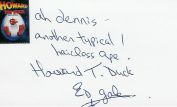 HOWARD
ah dennis -
another typical !
hairless ape.
Howard T. Duck
Ed Gale